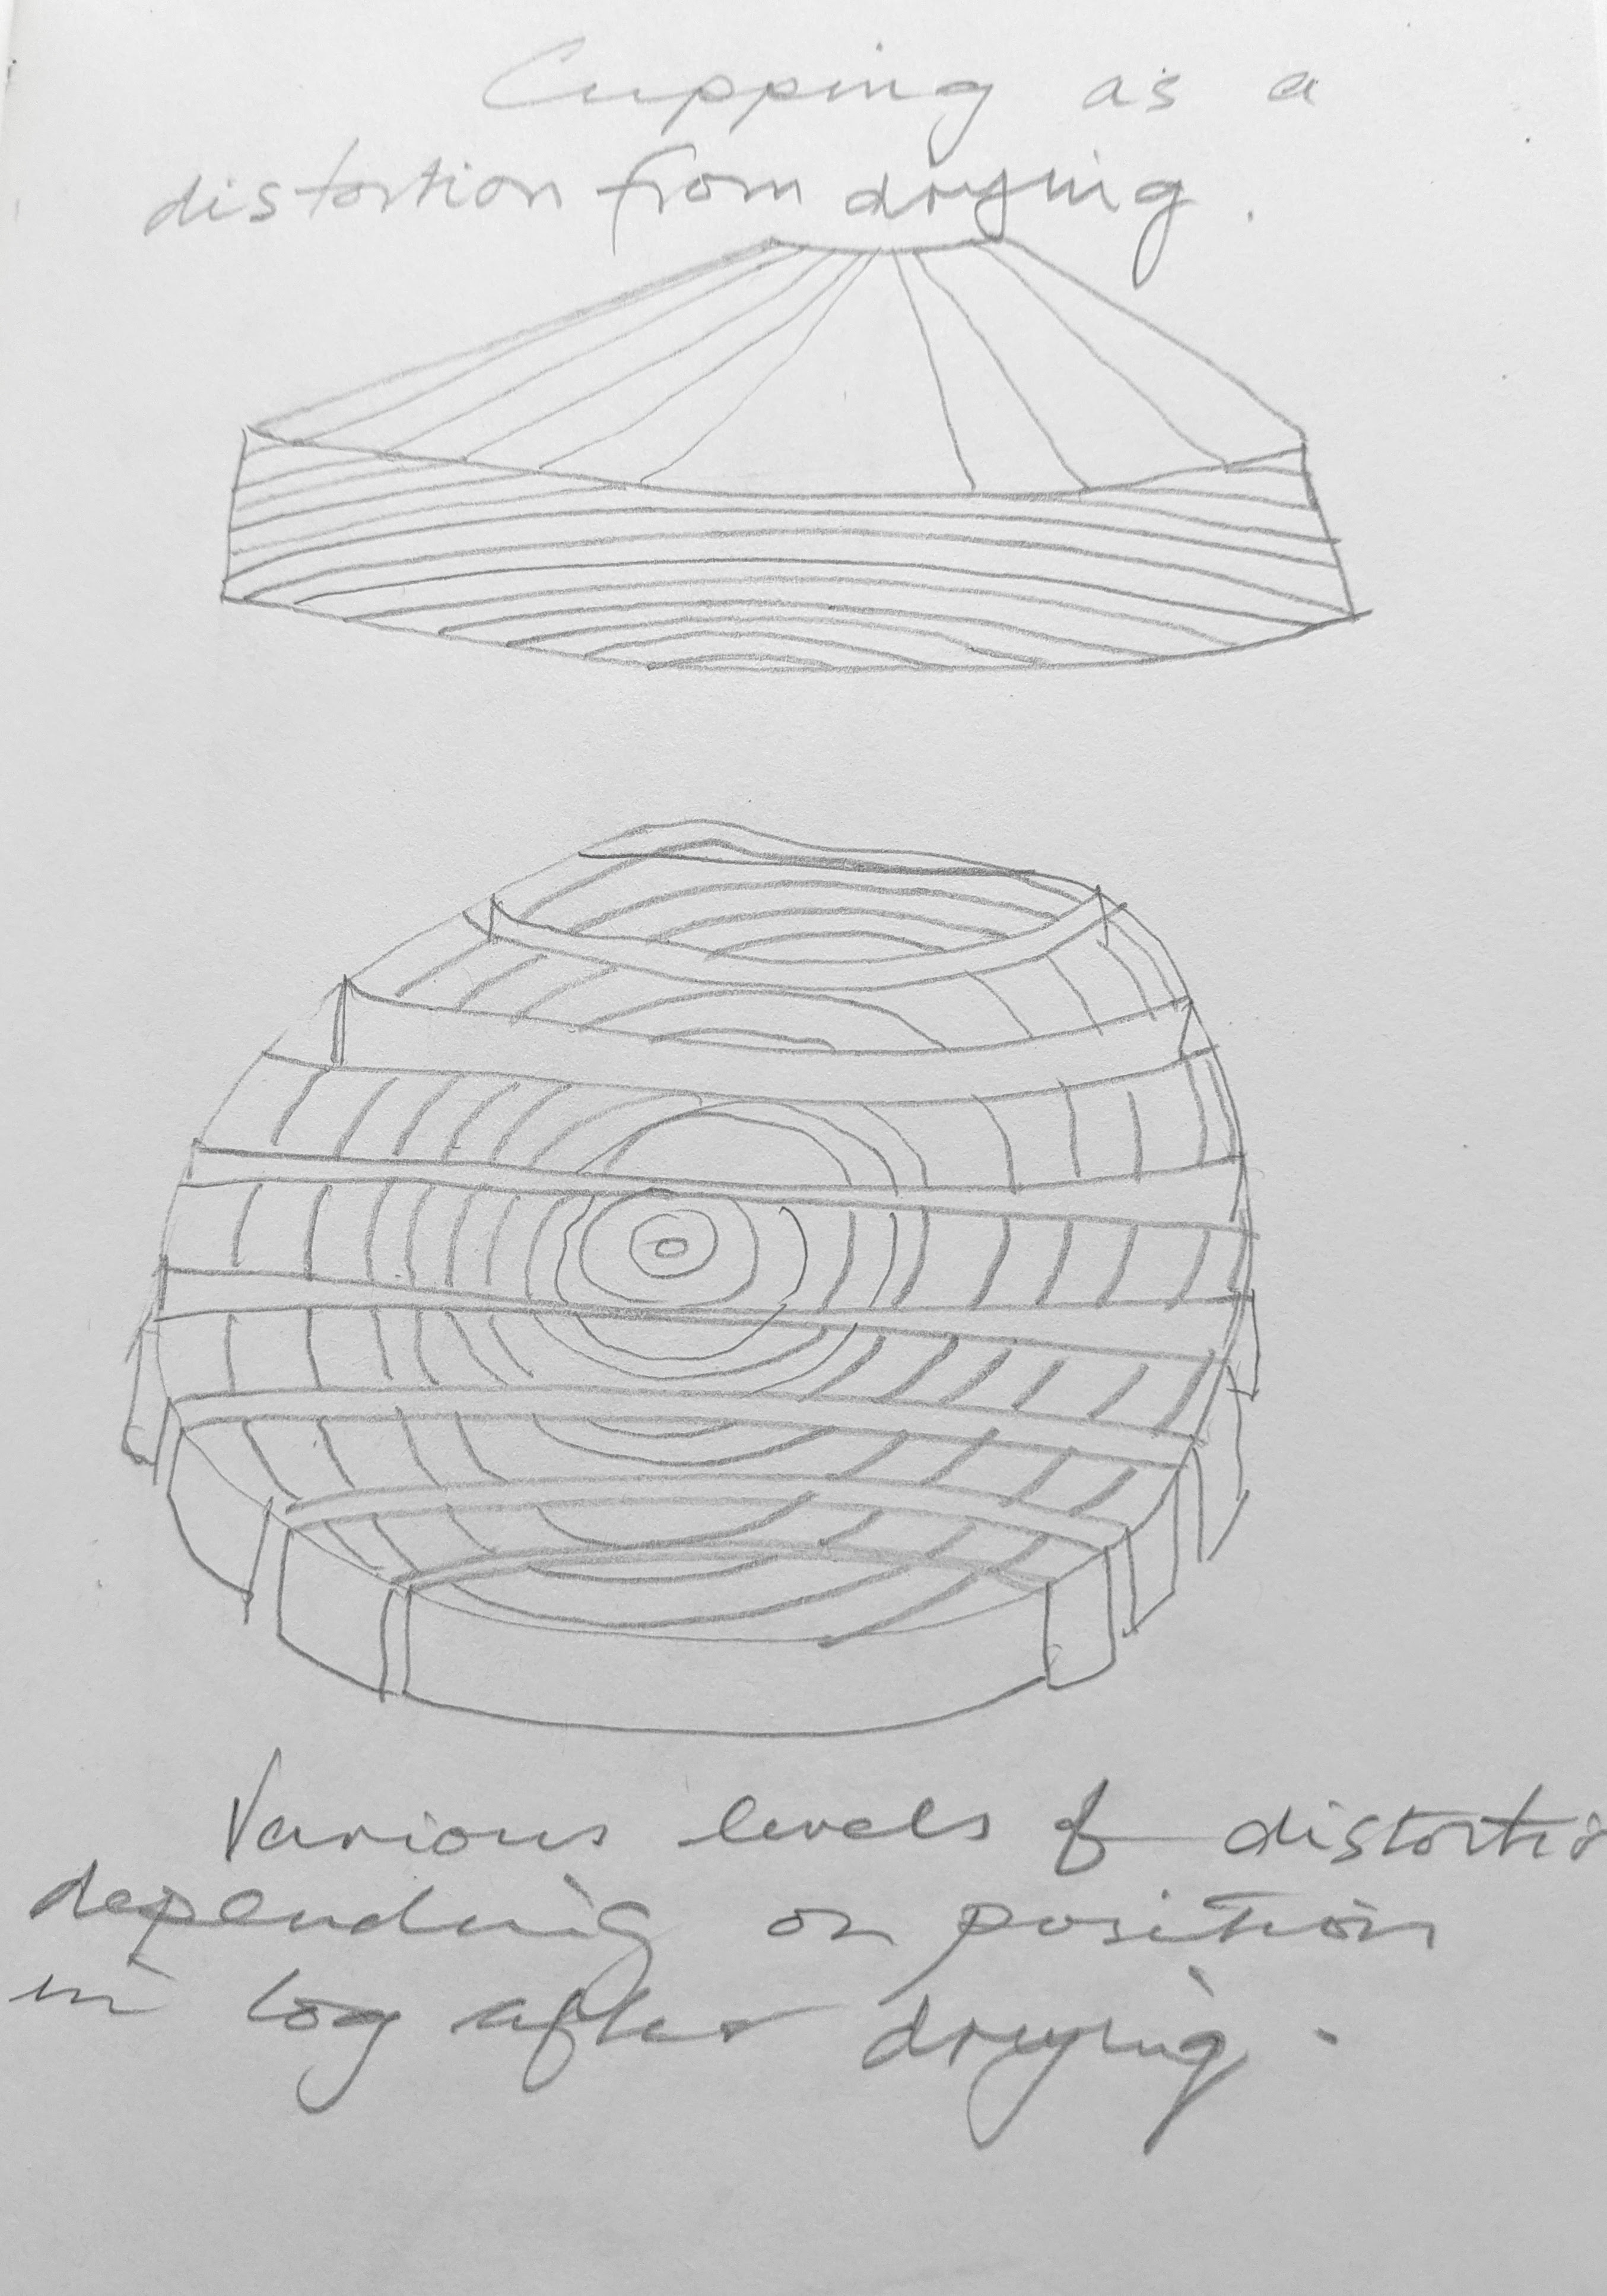 Cupping as a
distortion from drying.
Various levels of distortio
depending on position
in log after drying.